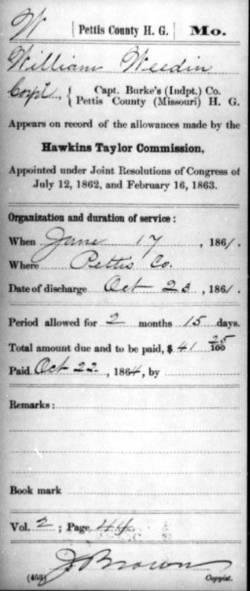 W | Pettis County H. G. | Mo.
William Weedin
Corp'l, { Capt. Burke's (Indpt.) Co.
Pettis County (Missouri) H. G.
Appears on record of the allowances made by the
Hawkins Taylor Commission,
Appointed under Joint Resolutions of Congress of
July 12, 1862, and February 16, 1863.
Organization and duration of service:
When June 17, 1861.
Where Pettis Co.
Date of discharge Oct 23, 1861.
Period allowed for 2 months 15 days.
Total amount due and to be paid, $41 25/100
Paid Oct 22, 1864, by
Remarks:
Book mark
Vol. 2; Page 44
J Brown
Copyist.